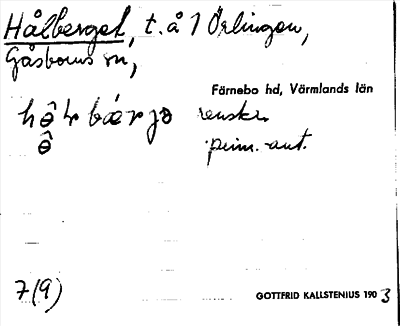 Hålberget, t. å 1 Örlingen,
Gåsborns sn,
Färnebo hd, Värmlands län
prim. ant.
7(9)
GOTTFRID KALLSTENIUS 1903